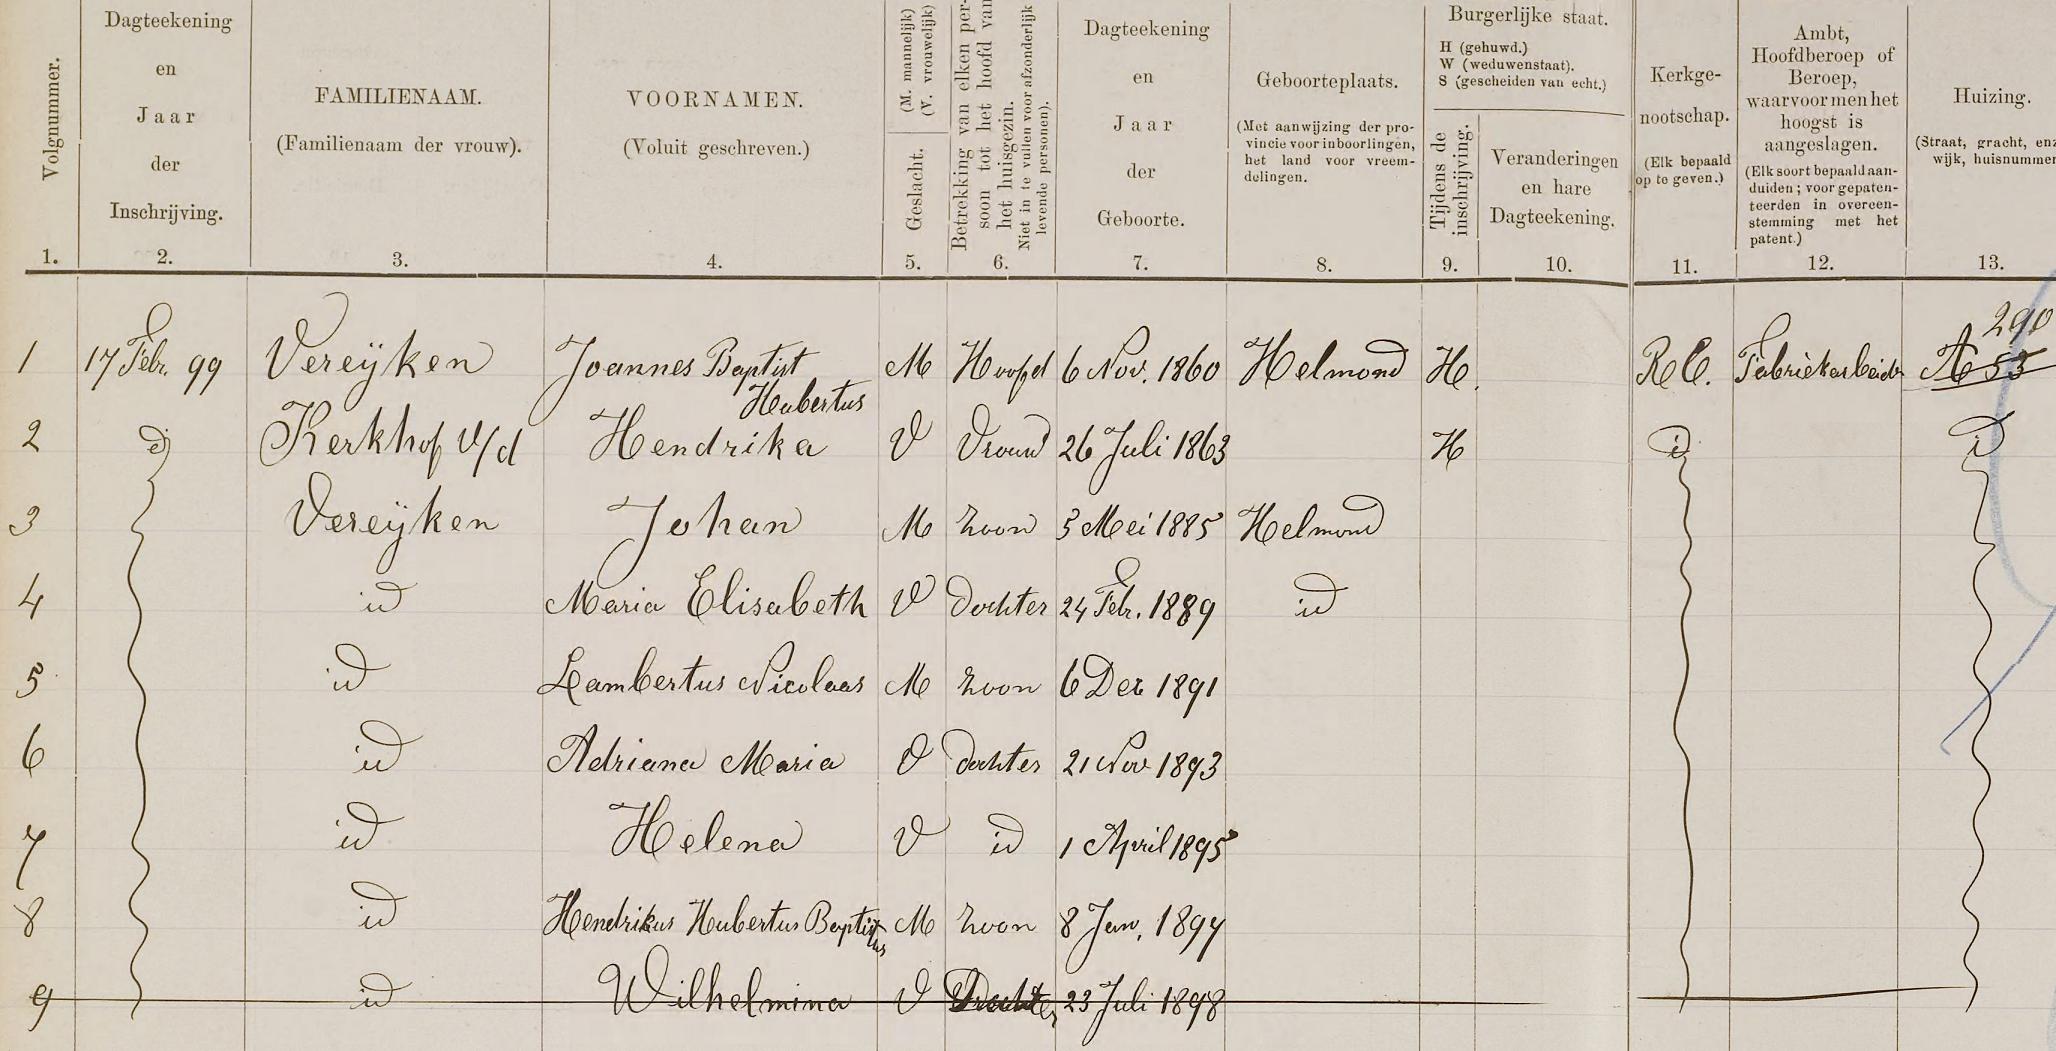 Volgnummer.
1.
Dagteekening
en
Jaar
der
Inschrijving.
2.
FAMILIENAAM.
(Familienaam der vrouw).
3.
VOORNAMEN.
(Voluit geschreven.)
4.
(M. mannelijk)
(V. vrouwelijk)
Geslacht.
5.
Betrekking van elken per-
soon tot het hoofd van
het huisgezin.
Niet in te vullen voor afzonderlijk
levende personen).
6.
Dagteekening
en
Jaar
der
Geboorte.
7.
Geboorteplaats.
(Met aanwijzing der pro-
vincie voor inboorlingen,
het land voor vreem-
delingen.
8.
Burgerlijke staat.
H (gehuwd.)
W (weduwenstaat).
S (gescheiden van echt.)
Tijdens de
inschrijving.
9.
Veranderingen
en hare
Dagteekening.
10.
Kerkge-
nootschap.
(Elk bepaald
op te geven.)
11.
Ambt,
Hoofdberoep of
Beroep,
waarvoor men het
hoogst is
aangeslagen.
(Elk soort bepaald aan-
duiden; voor gepaten-
teerden in overeen-
stemming met het
patent.)
12.
Huizing.
(Straat, gracht, enz
wijk, huisnummer
13.
290
1 17 Febr. 99 Vereijken Joannes Baptist M Hoofd 6 Nov. 1860 Helmond H. R C. Fabriekarbeider A 53
Hubertus
2 id Kerkhof v/d Hendrika V Vrouw 26 Juli 1863 H id id
3 Vereijken Johan M zoon 5 Mei 1885 Helmond
4 id Maria Elisabeth V dochter 24 Febr. 1889 id
5 id Lambertus Nicolaas M zoon 6 Dec 1891
6 id Adriana Maria V dochter 21 Nov 1893
7 id Helena V id 1 April 1895
8 id Hendrikus Hubertus Baptistus M zoon 8 Jan. 1897
9 id Wilhelmina V Dochter 23 Juli 1898